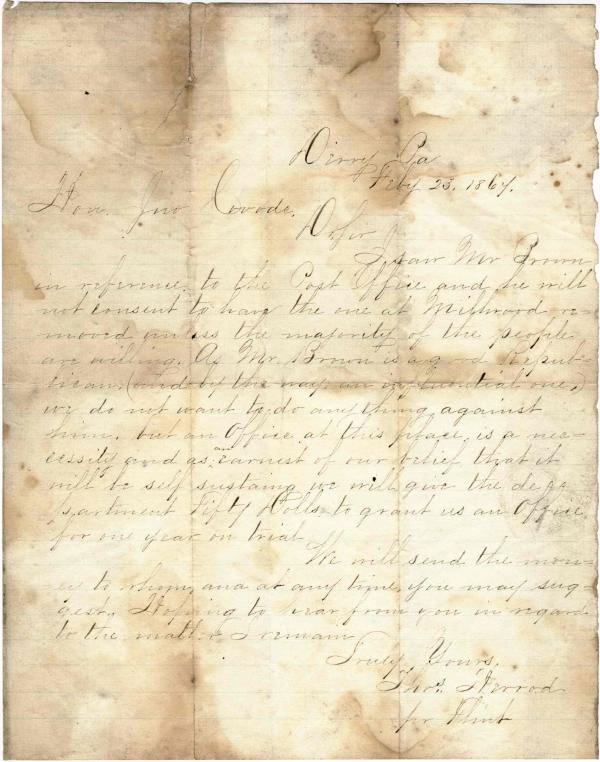 Derry Pa
Feby 23. 1867.
Hon. Jno Covode.
D. Sir
I saw Mr Brown
in reference to the Post Office and he will
not consent to have the one at Millwood re-
moved unless the majority of the people
are willing. As Mr. Brown is a good Repub-
lican (and by the way an influential one,)
we do not want to do anything against
him. but an Office at this place is a nec-
cessity and as an earnest of our belief that it
will be self sustaing we will give the de
partment Fifty Dolls. to grant us an Office
for one year on trial
We will send the mon-
ey to whom, and at any time, you may sug-
gest. Hoping to hear from you in regard
to the matter I remain
Truly Yours,
Thos. Herrod
per